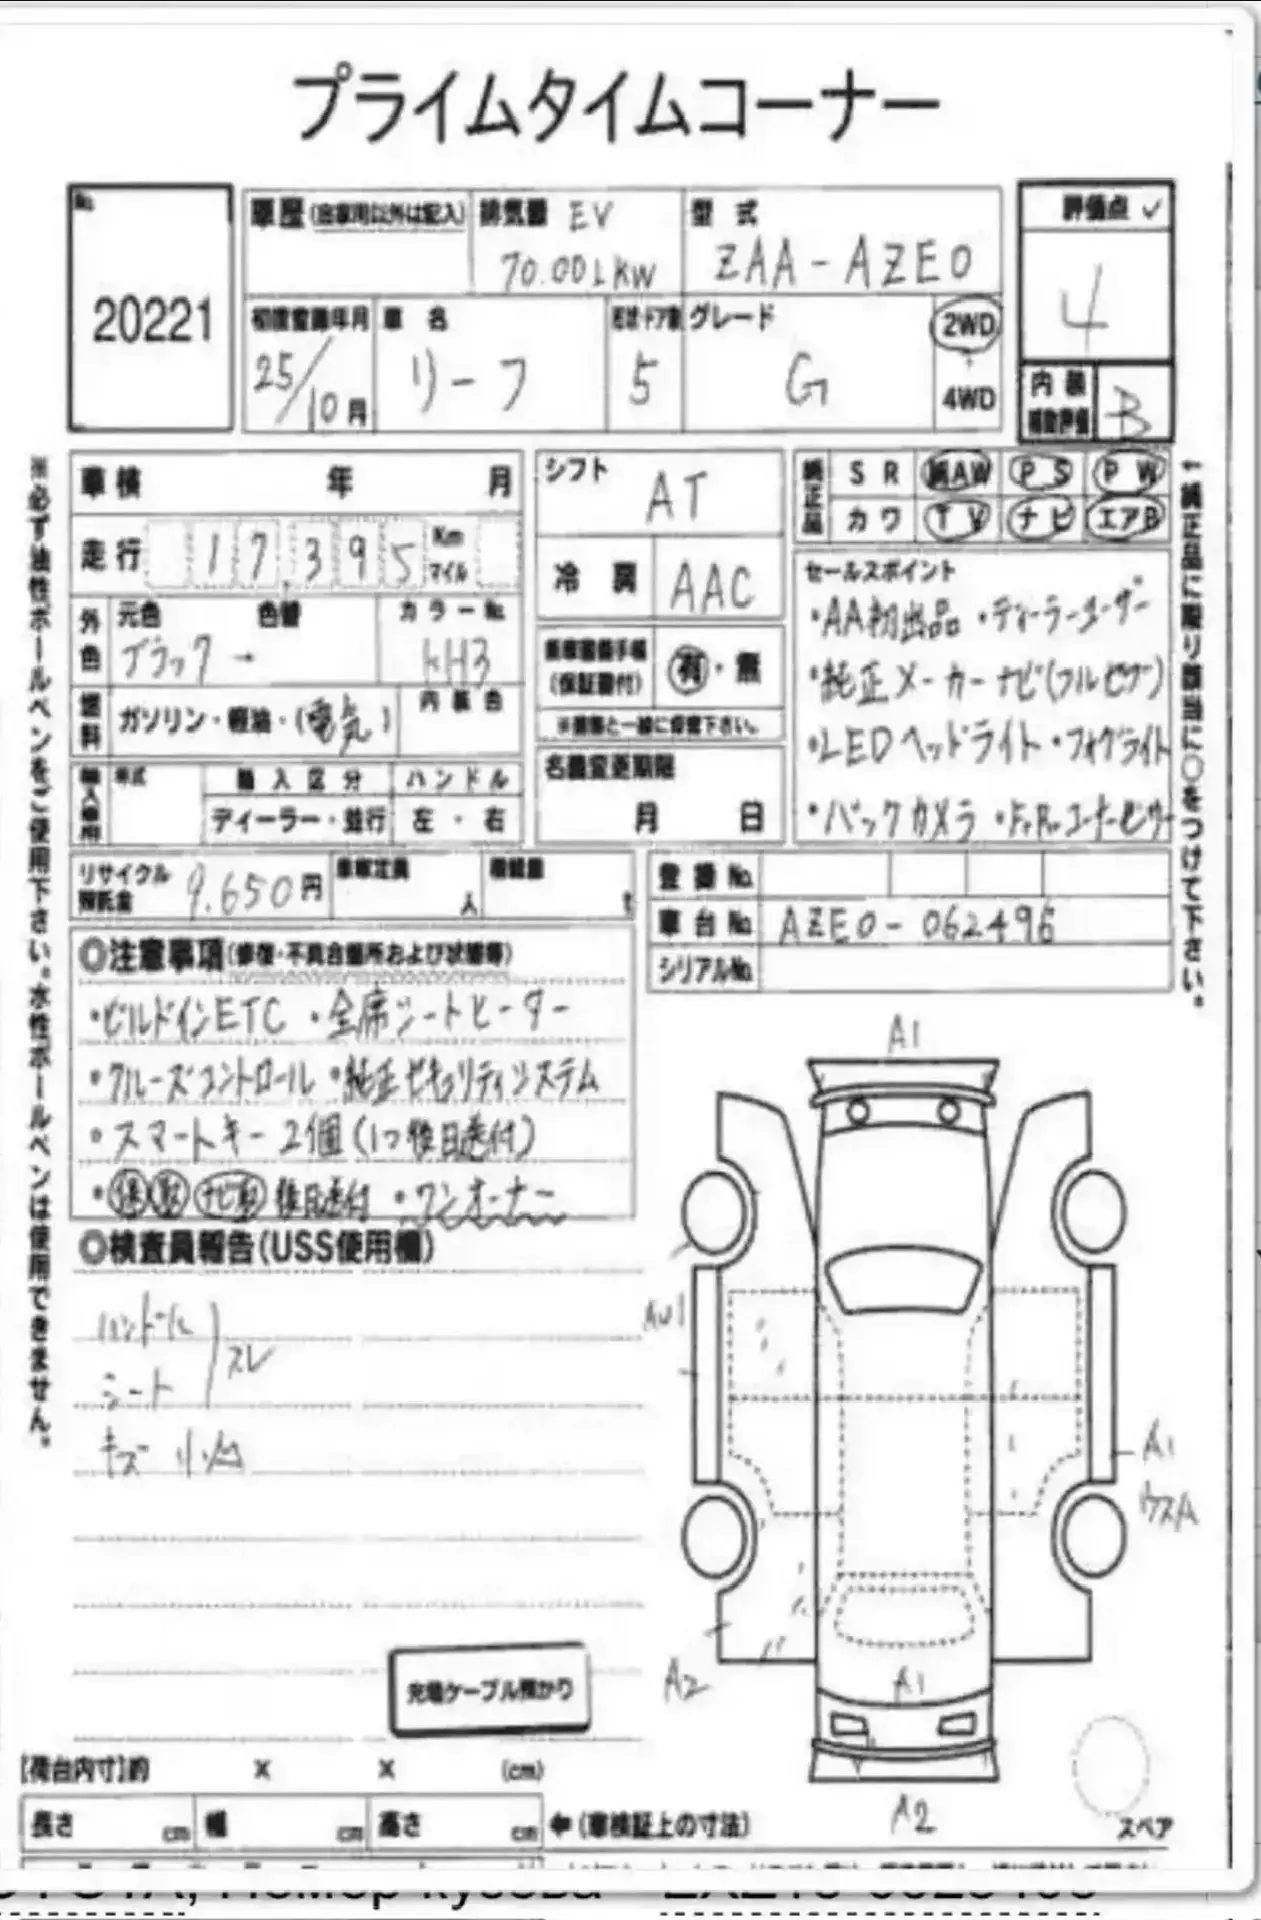 プライムタイムコーナー
No.
20221
車歴 (自家用以外は記入)
排気量 EV
70.00L KW
型 式
ZAA-AZE0
評価点 ✓
4
内装
補助評価
B
初度登録年月
25/10月
車 名
リーフ
形状・ドア数
5
グレード
G
2WD
・
4WD
車検 年 月
シフト
AT
純正品
S R 純AW P S P W
カワ T V ナビ エアB
走行 17,395 Km
マイル
冷 房 AAC
外色
元色 色替 カラーNo.
ブラック → KH3
燃料
ガソリン・軽油・(電気)
内装色
整備手帳
(保証書付)
有・無
※書類と一緒に
名義変更期限
月 日
セールスポイント
・AA初出品 ・ディーラーユーザー
・純正メーカーナビ(フルセグ)
・LEDヘッドライト ・フォグライト
・バックカメラ ・Fr,Rrコーナーセンサー
輸入車用
年式 輸入区分 ハンドル
ディーラー・並行 左・右
リサイクル
預託金
9.650円
乗車定員
人
積載量
t
登録No.
車台No. AZE0-062496
シリアルNo.
◎注意事項(修復・不具合箇所および状態等)
・ビルドインETC ・全席シートヒーター
・クルーズコントロール ・純正セキュリティシステム
・スマートキー 2個(1つ後日送付)
・保 取 ナビ取 後日送付 ・ワンオーナー
◎検査員報告(USS使用欄)
ハンドル
シート
スレ
キズ 小凹
充電ケーブル預かり
A1
AW1
A1
ウスA
A2
A1
A2
スペア
[荷台内寸]約 × × (cm)
長さ cm 幅 cm 高さ cm ←(車検証上の寸法)
※必ず油性ボールペンをご使用下さい。水性ボールペンは使用できません。
↑純正品に限り該当に○をつけて下さい。